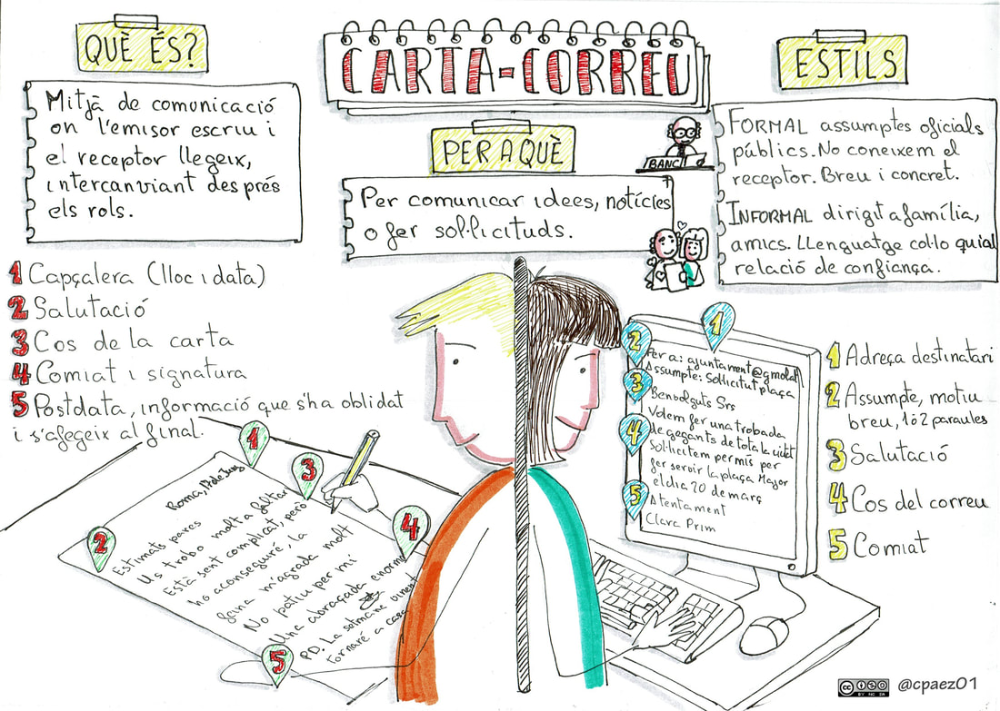 QUÈ ÉS?
Mitjà de comunicació
on l'emisor escriu i
el receptor llegeix,
intercanviant després
els rols.
CARTA-CORREU
PER A QUÈ
Per comunicar idees, notícies
o fer sol·licituds.
ESTILS
BANC
FORMAL assumptes oficials
públics. No coneixem el
receptor. Breu i concret.
INFORMAL dirigit a família,
amics. Llenguatge col·loquial
relació de confiança.
1 Capçalera (lloc i data)
2 Salutació
3 Cos de la carta
4 Comiat i signatura
5 Postdata, informació que s'ha oblidat
i s'afegeix al final.
1
3
4
2
5
Roma, 12 de Juny
Estimats pares
Us trobo molt a faltar
Està sent complicat, però
ho aconseguiré, la
faina m'agrada molt
No patiu per mi
Una abraçada enorme
P.D. La setmana vinent
tornaré a casa
1
2
3
4
5
Per a: ajuntament@gmail
Assumpte: Sol·licitut plaça
Benvolguts Srs
Volem fer una trobada
de gegants de tota la
Sol·licitem permís per
fer servir la plaça Major
el dia 20 de març
Atentament
Clara Prim
1 Adreça destinatari
2 Assumpte, motiu
breu, 1 ò 2 paraules
3 Salutació
4 Cos del correu
5 Comiat
cc
BY NC SA
@cpaez01